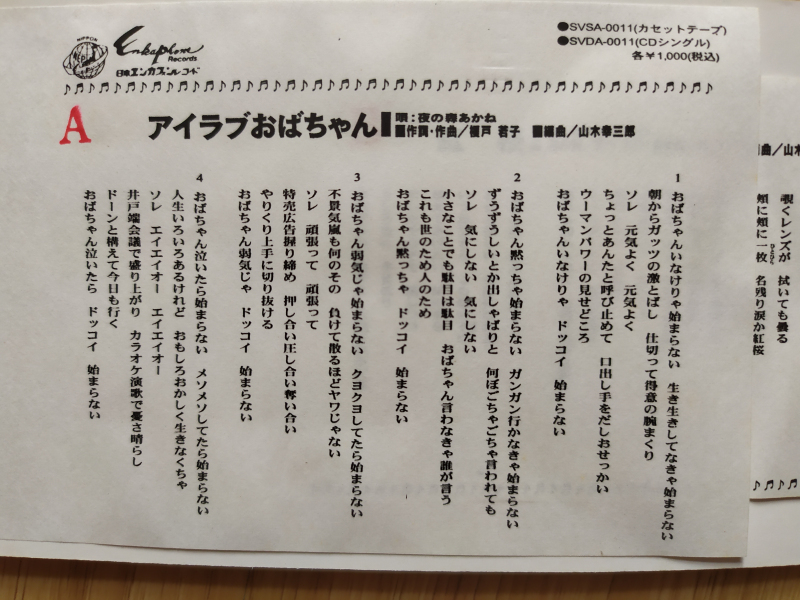 NIPPON
Enkaphon
Records
日本エンカフォンレコード
●SVSA-0011(カセットテープ)
●SVDA-0011(CDシングル)
各¥1,000(税込)
A
アイラブおばちゃん
唄:夜の森あかね
作詞・作曲/榎戸 若子 編曲/山木幸三郎
1 おばちゃんいなけりゃ始まらない 生き生きしてなきゃ始まらない
朝からガッツの激とばし 仕切って得意の腕まくり
ソレ 元気よく 元気よく
ちょっとあんたと呼び止めて 口出し手をだしおせっかい
ウーマンパワーの見せどころ
おばちゃんいなけりゃ ドッコイ 始まらない
2 おばちゃん黙っちゃ始まらない ガンガン行かなきゃ始まらない
ずうずうしいとか出しゃばりと 何ぼごちゃごちゃ言われても
ソレ 気にしない 気にしない
小さなことでも駄目は駄目 おばちゃん言わなきゃ誰が言う
これも世のため人のため
おばちゃん黙っちゃ ドッコイ 始まらない
3 おばちゃん弱気じゃ始まらない クヨクヨしてたら始まらない
不景気嵐も何のその 負けて散るほどヤワじゃない
ソレ 頑張って 頑張って
特売広告握り締め 押し合い圧し合い奪い合い
やりくり上手に切り抜ける
おばちゃん弱気じゃ ドッコイ 始まらない
4 おばちゃん泣いたら始まらない メソメソしてたら始まらない
人生いろいろあるけれど おもしろおかしく生きなくちゃ
ソレ エイエイオー エイエイオー
井戸端会議で盛り上がり カラオケ演歌で憂さ晴らし
ドーンと構えて今日も行く
おばちゃん泣いたら ドッコイ 始まらない
編曲/山木
覗くレンズが 拭いても曇る
頬に頬に一枚 名残り涙か紅桜